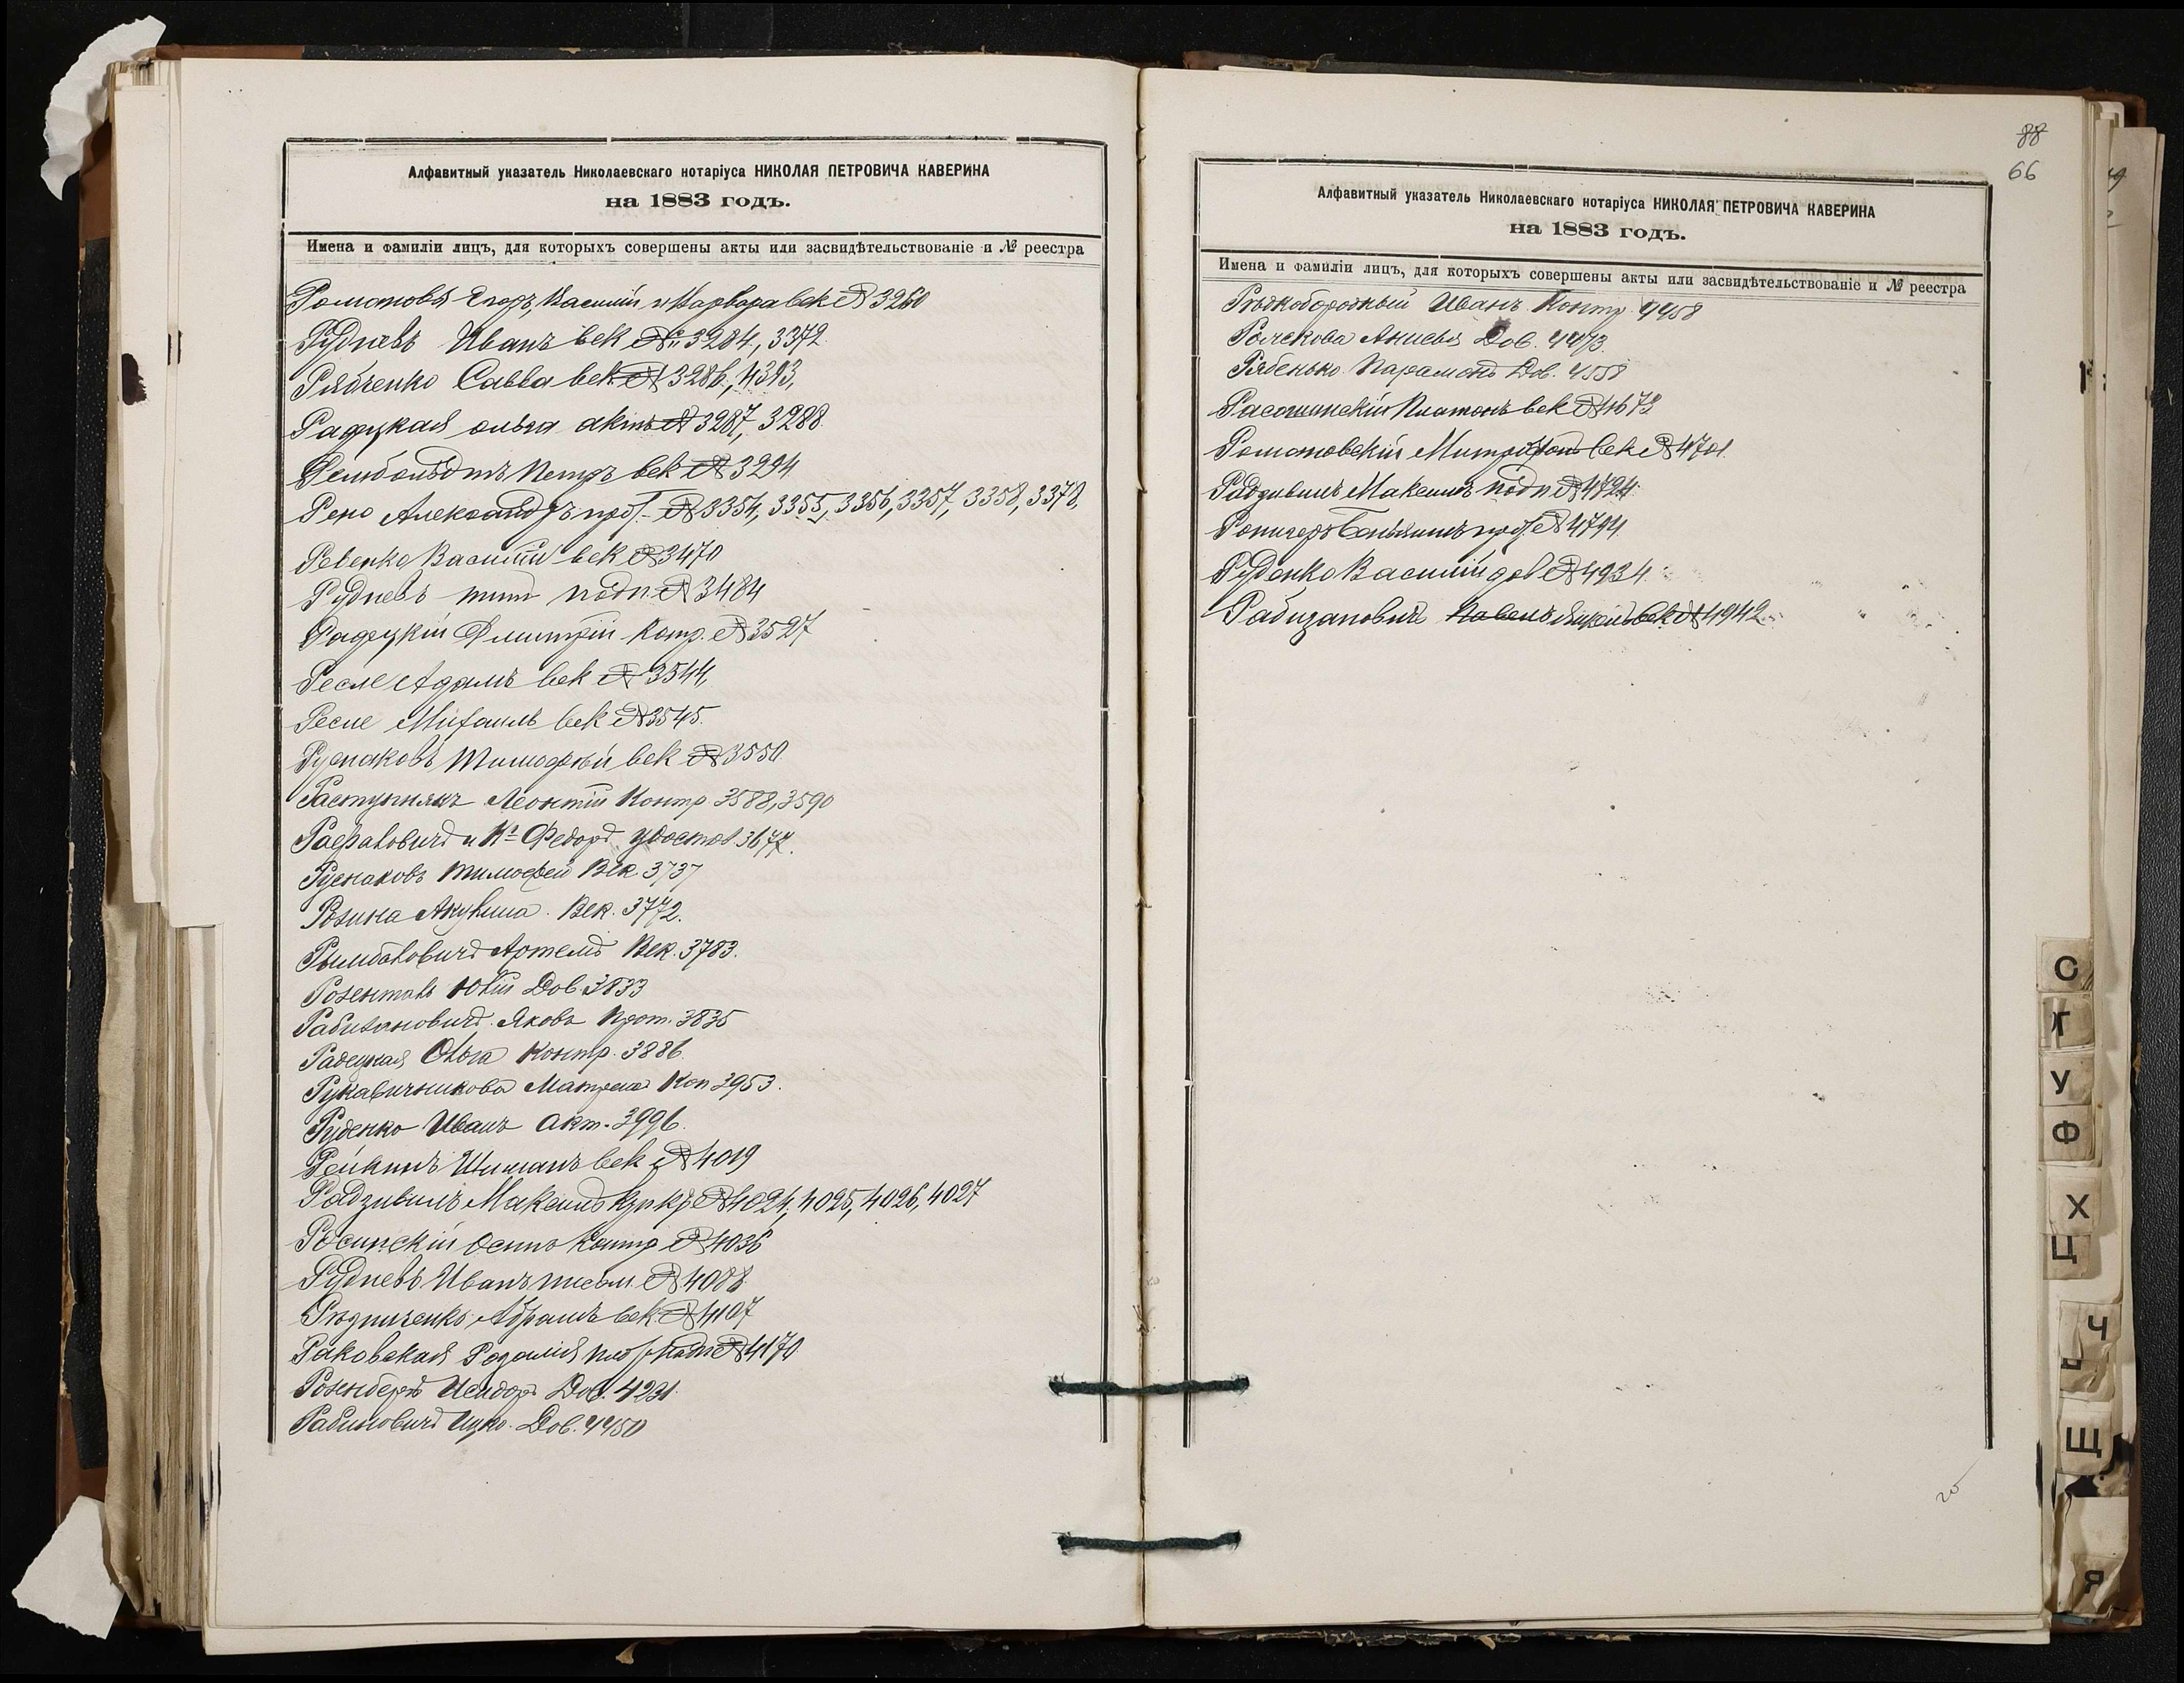 Алфавитный указатель Николаевскаго нотаріуса НИКОЛАЯ ПЕТРОВИЧА КАВЕРИНА
на 1883 годъ.
Имена и фамиліи лицъ, для которыхъ совершены акты или засвидѣтельствованіе и № реестра
Егоръ, Василій и Варвара век № 3260
Рудневъ Иванъ век № 3284, 3372
Рябченко Савва век № 3286, 4393,
Радецкая ольга актъ № 3287, 3288
Рембольдтъ Петръ век № 3294
Рено Александръ прот № 3354, 3355, 3356, 3357, 3358, 3378,
Ревенко Василій век № 3470
Рудневъ титъ подп. № 3484
Радецкій Дмитрій Контр. № 3527
Ресле Адамъ век № 3544,
Ресле Михаилъ век № 3545.
Руснаковъ Тимофѣй век № 3550
Леонтій Контр. 3588, 3590
Рафаловичъ и Кº Федоръ удостов. 3677.
Руснаковъ Тимофей Век. 3737
Розина Акулина. Век. 3772.
Артемъ Век. 3783.
Розенталь Юлій Дов. 3833
Рабизановичъ. Яковъ Прот. 3835
Радецкая Ольга Контр. 3886.
Рукавичникова Матрена Коп 3953.
Руденко Иванъ Акт. 3996.
Рейкинъ Шиманъ век № 4019
Радзивилъ Максимъ № 4024, 4025, 4026, 4027
Росинскій Осипъ Контр № 4036
Рудневъ Иванъ № 4088
Абрамъ век. № 4107
Раковская Розалія подп № 4170
Розенбергъ Исидоръ Дов. 4231.
Рабиновичъ Ицко. Дов. 4450
88
66
Алфавитный указатель Николаевскаго нотаріуса НИКОЛАЯ ПЕТРОВИЧА КАВЕРИНА
на 1883 годъ.
Имена и фамиліи лицъ, для которыхъ совершены акты или засвидѣтельствованіе и № реестра
Рѣдкобородный Иванъ. Контр. 4458
Анисья Дов. 4473.
Рябенько Парамонъ Дов. 4558
Платонъ век № 4673
Митрофанъ век № 4701.
Радзивилъ Максимъ подп № 4724
прот. № 4794
Руденко Василій дов № 4934
Рабизановичъ век № 4942
С
Т
У
Ф
Х
Ц
Ч
Щ
Я